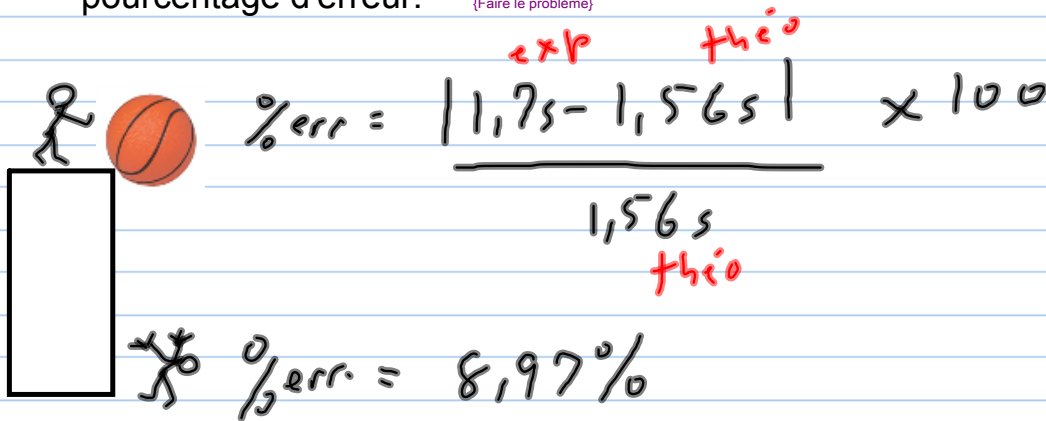 pourcentage d'erreur. {Faire le problème}
exp théo
%err = |1,7s - 1,56s| x 100
1,56s
théo
%err. = 8,97%